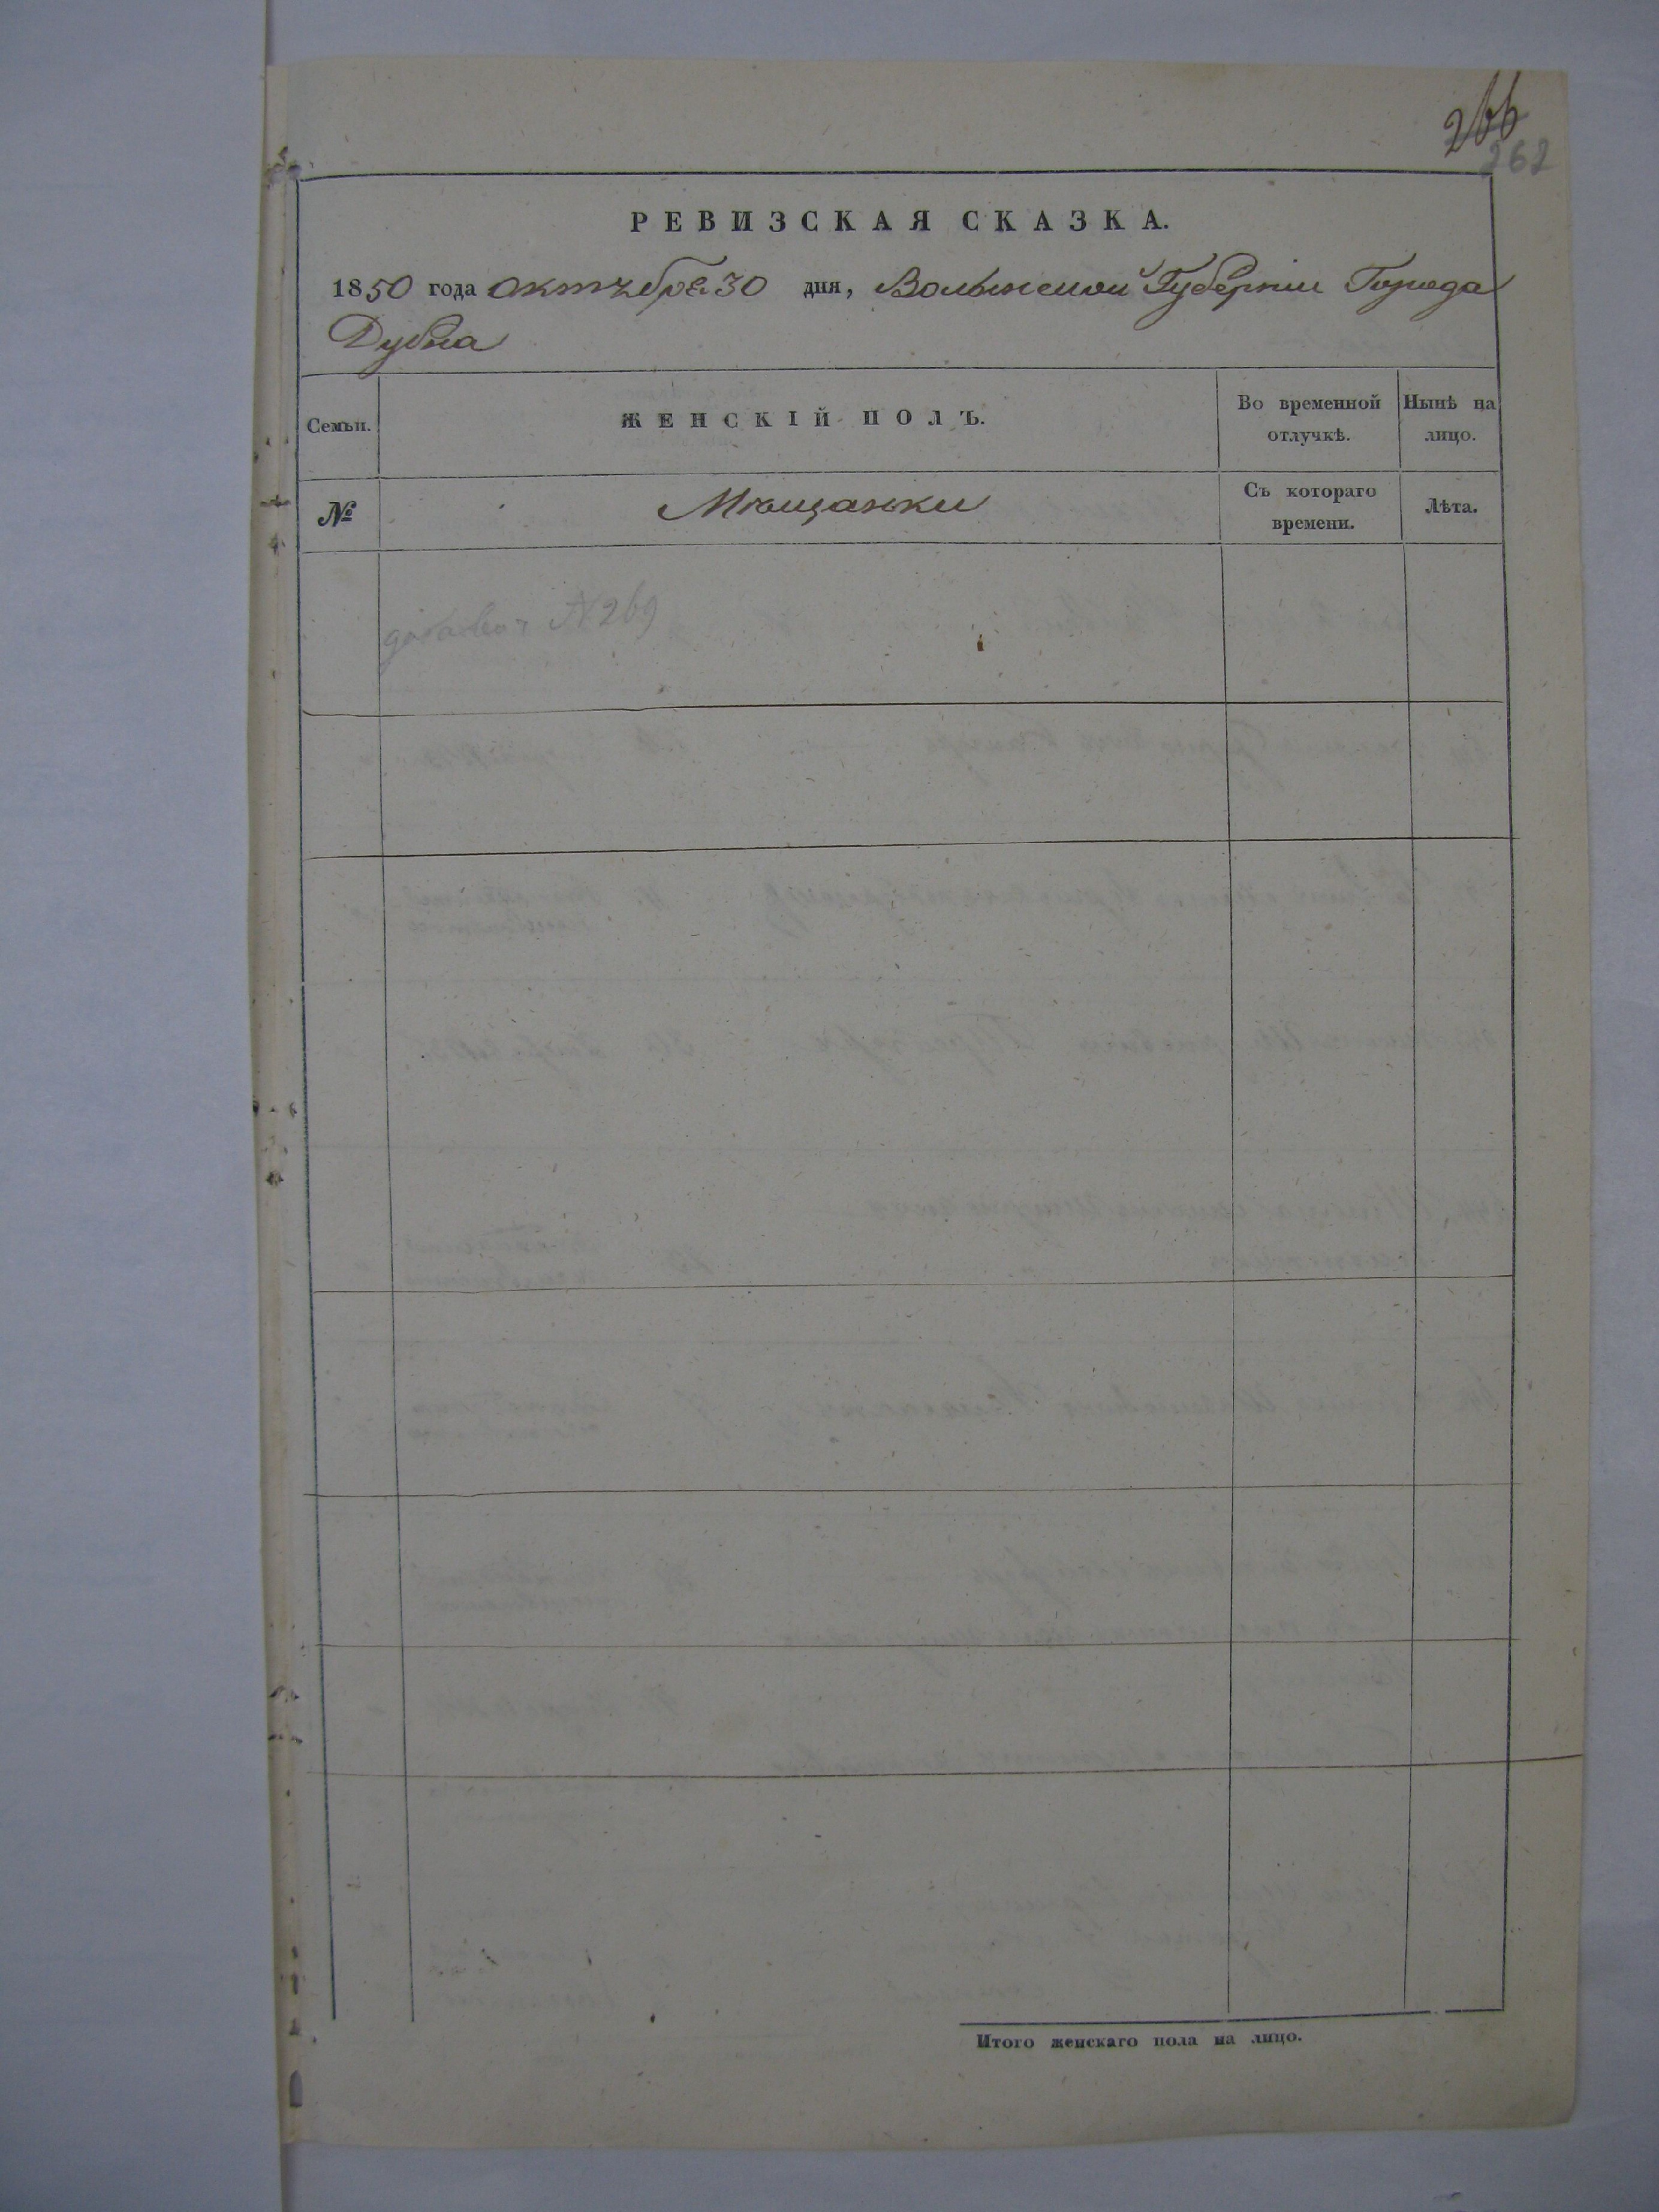 266
262
РЕВИЗСКАЯ СКАЗКА.
1850 года октября 30 дня, Волынской Губерніи Города
Дубна
Семьи.
ЖЕНСКІЙ ПОЛЪ.
Во временной отлучкѣ.
Нынѣ на лицо.
№
Мѣщанки
Съ котораго времени.
Лѣта.
№ 269
Итого женскаго пола на лицо.